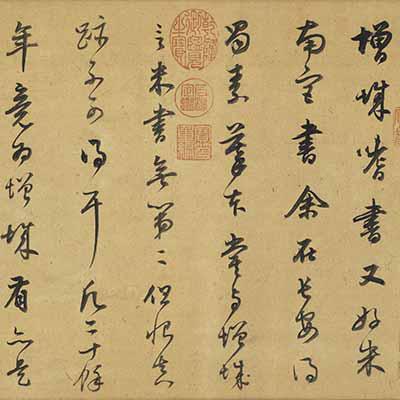 增城嗜書又好米
南宮書余在長安得
蜀素摹本嘗與增城
言米書無第二但恨真
跡不可得耳凡二十餘
年竟為增城有亦是